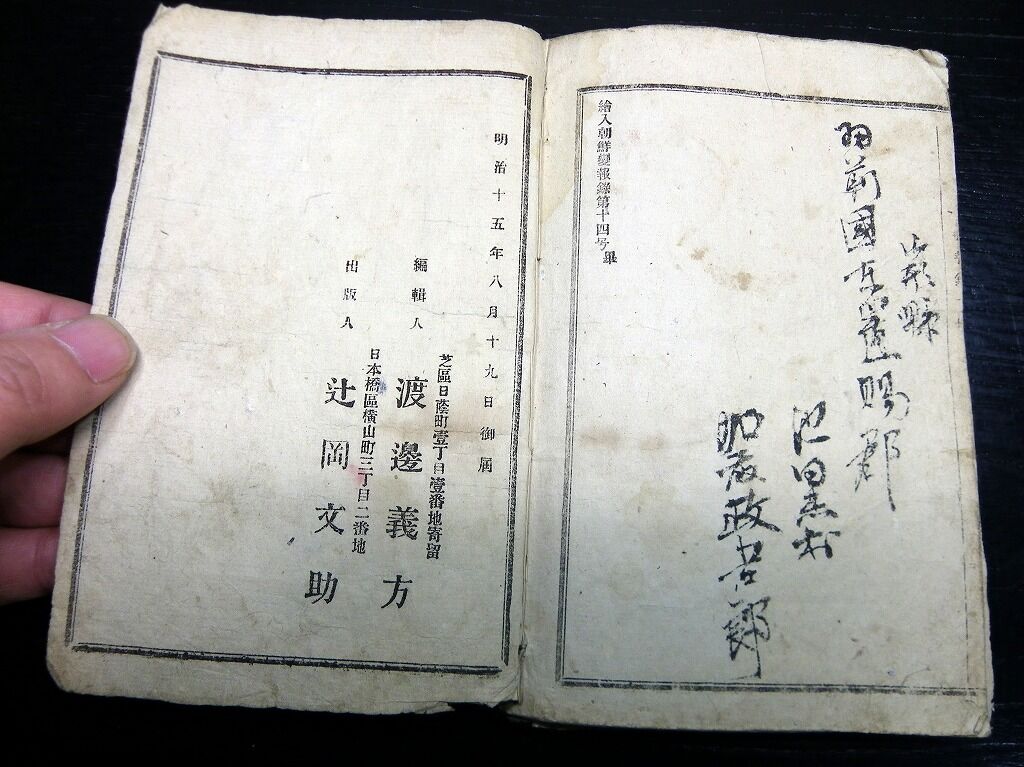 山形縣
羽前國東置賜郡
加藤政吉郎
繪入朝鮮變報錄第十四号畢
明治十五年八月十九日御屆
芝區日蔭町壹丁目壹番地寄留
編輯人 渡邊義方
日本橋區橫山町三丁目二番地
出版人 辻岡文助